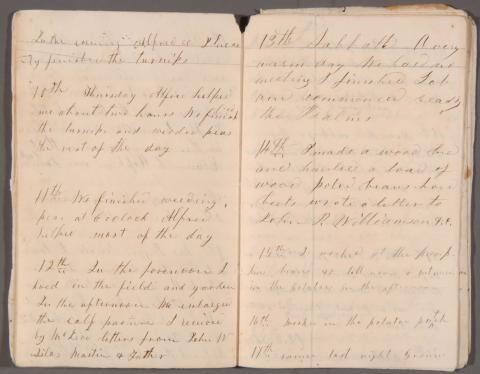 In the evening Alfred &
finished the turnips
10th Thursday Alfred helped
me about two hours We finished
the turnips and weeded peas
the rest of the day
11th We finished weeding
peas at 6 oclock Alfred
helped most of the day
12th In the forenoon I
hoed in the field and garden
In the afternoon We enlarged
the calf pasture I received
by letters from John W
Silas Martin & Father
13th Sabbath A very
warm day We had no
meeting I finished Job
and commenced reading
the Psalms
14th I made a wood
and hauled a load of
wood poled beans hoed
beets wrote a letter to
John R. Williamson
15th I worked at the
till noon &
in the potatoes in the afternoon
16th worked in the potato patch
17th last night